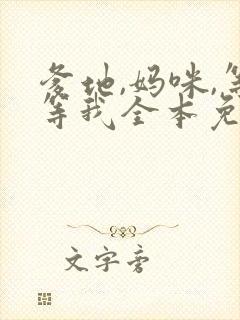 爹地,妈咪,等
等我全本免
文字旁